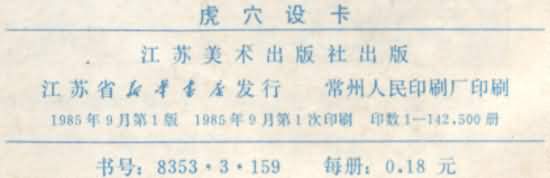 虎穴设卡
江苏美术出版社出版
江苏省新华书店发行 常州人民印刷厂印刷
1985年9月第1版 1985年9月第1次印刷 印数1—142,500册
书号：8353·3·159 每册：0.18元